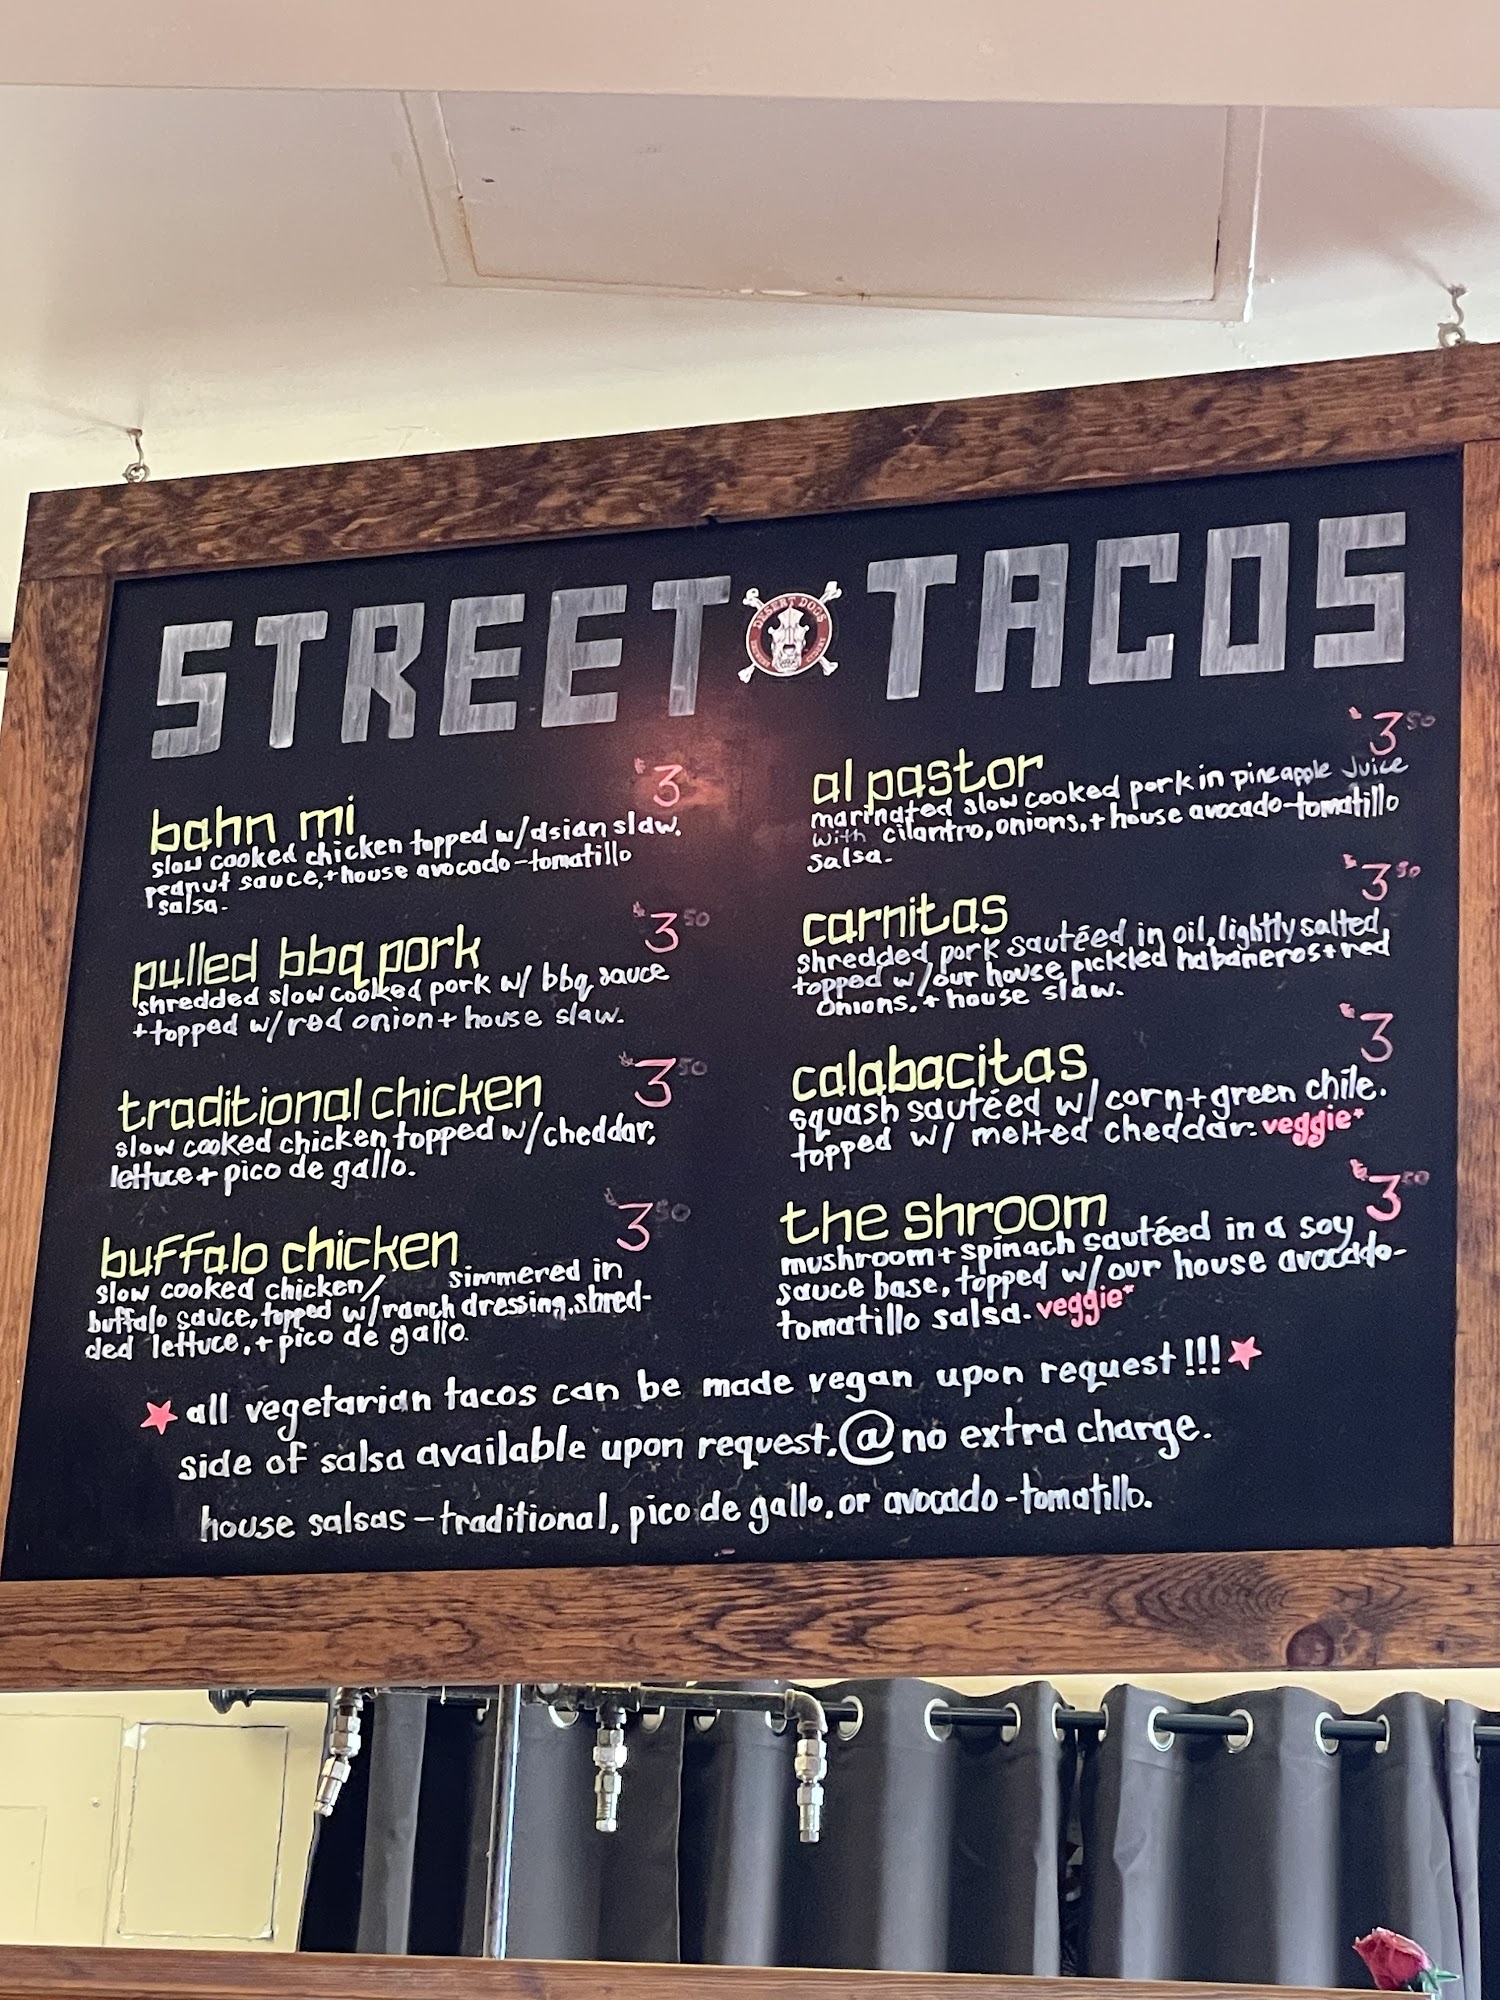 STREET TACOS
DESERT DOGS
bahn mi $3
slow cooked chicken topped w/asian slaw,
peanut sauce,+house avocado-tomatillo
salsa.
pulled bbq pork $3 50
shredded slow cooked pork w/ bbq sauce
+topped w/red onion+house slaw.
traditional chicken $3 50
slow cooked chicken topped w/cheddar,
lettuce+pico de gallo.
buffalo chicken $3 50
slow cooked chicken/ simmered in
buffalo sauce, topped w/ranch dressing,shred-
ded lettuce,+pico de gallo.
al pastor $3 50
marinated slow cooked pork in pineapple Juice
with cilantro,onions,+house avocado-tomatillo
salsa.
carnitas $3 50
shredded pork sautéed in oil, lightly salted,
topped w/our house pickled habaneros+red
onions,+house slaw.
calabacitas $3
squash sautéed w/corn+green chile.
topped w/ melted cheddar. veggie*
the shroom $3 50
mushroom+spinach sautéed in a soy
sauce base, topped w/our house avocado-
tomatillo salsa. veggie*
★all vegetarian tacos can be made vegan upon request!!!★
side of salsa available upon request.@no extra charge.
house salsas-traditional, pico de gallo, or avocado-tomatillo.